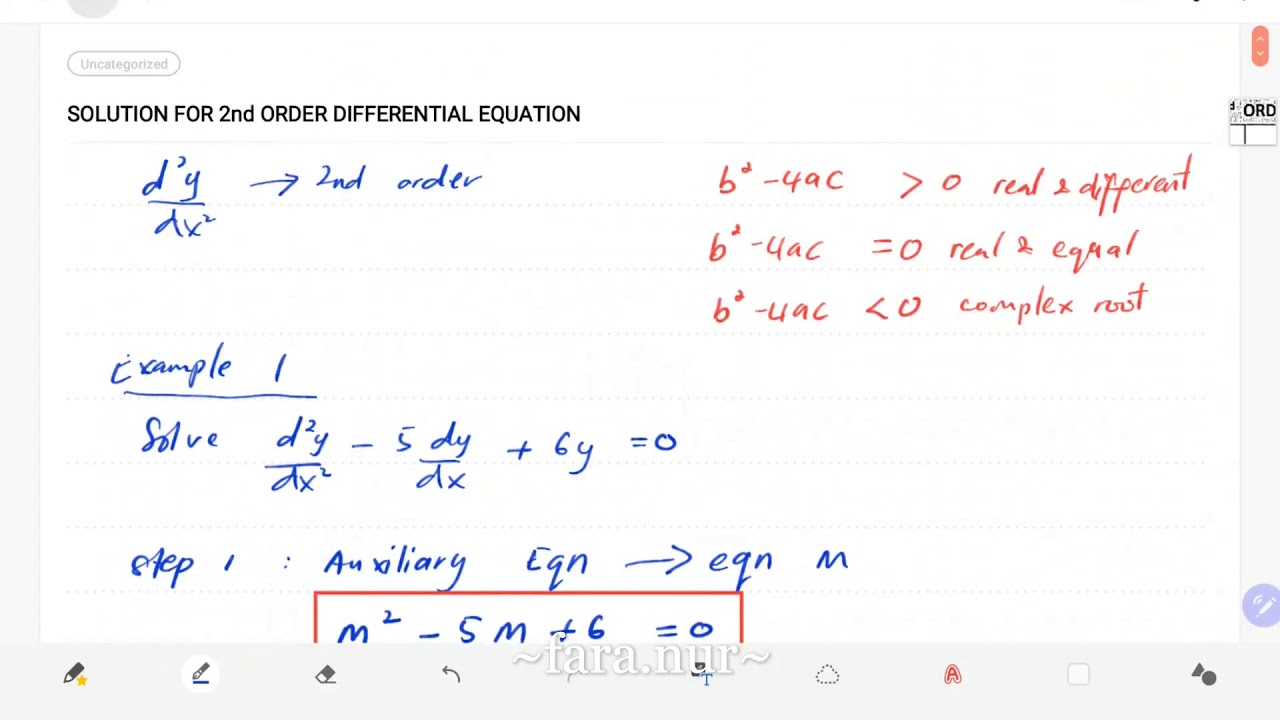 Uncategorized
SOLUTION FOR 2nd ORDER DIFFERENTIAL EQUATION
ORD
d²y/dx² → 2nd order
b² - 4ac > 0 real & different
b² - 4ac = 0 real & equal
b² - 4ac < 0 complex root
Example 1
Solve d²y/dx² - 5 dy/dx + 6y = 0
Step 1 : Auxiliary Eqn → eqn m
m² - 5m + 6 = 0
~fara.nur~